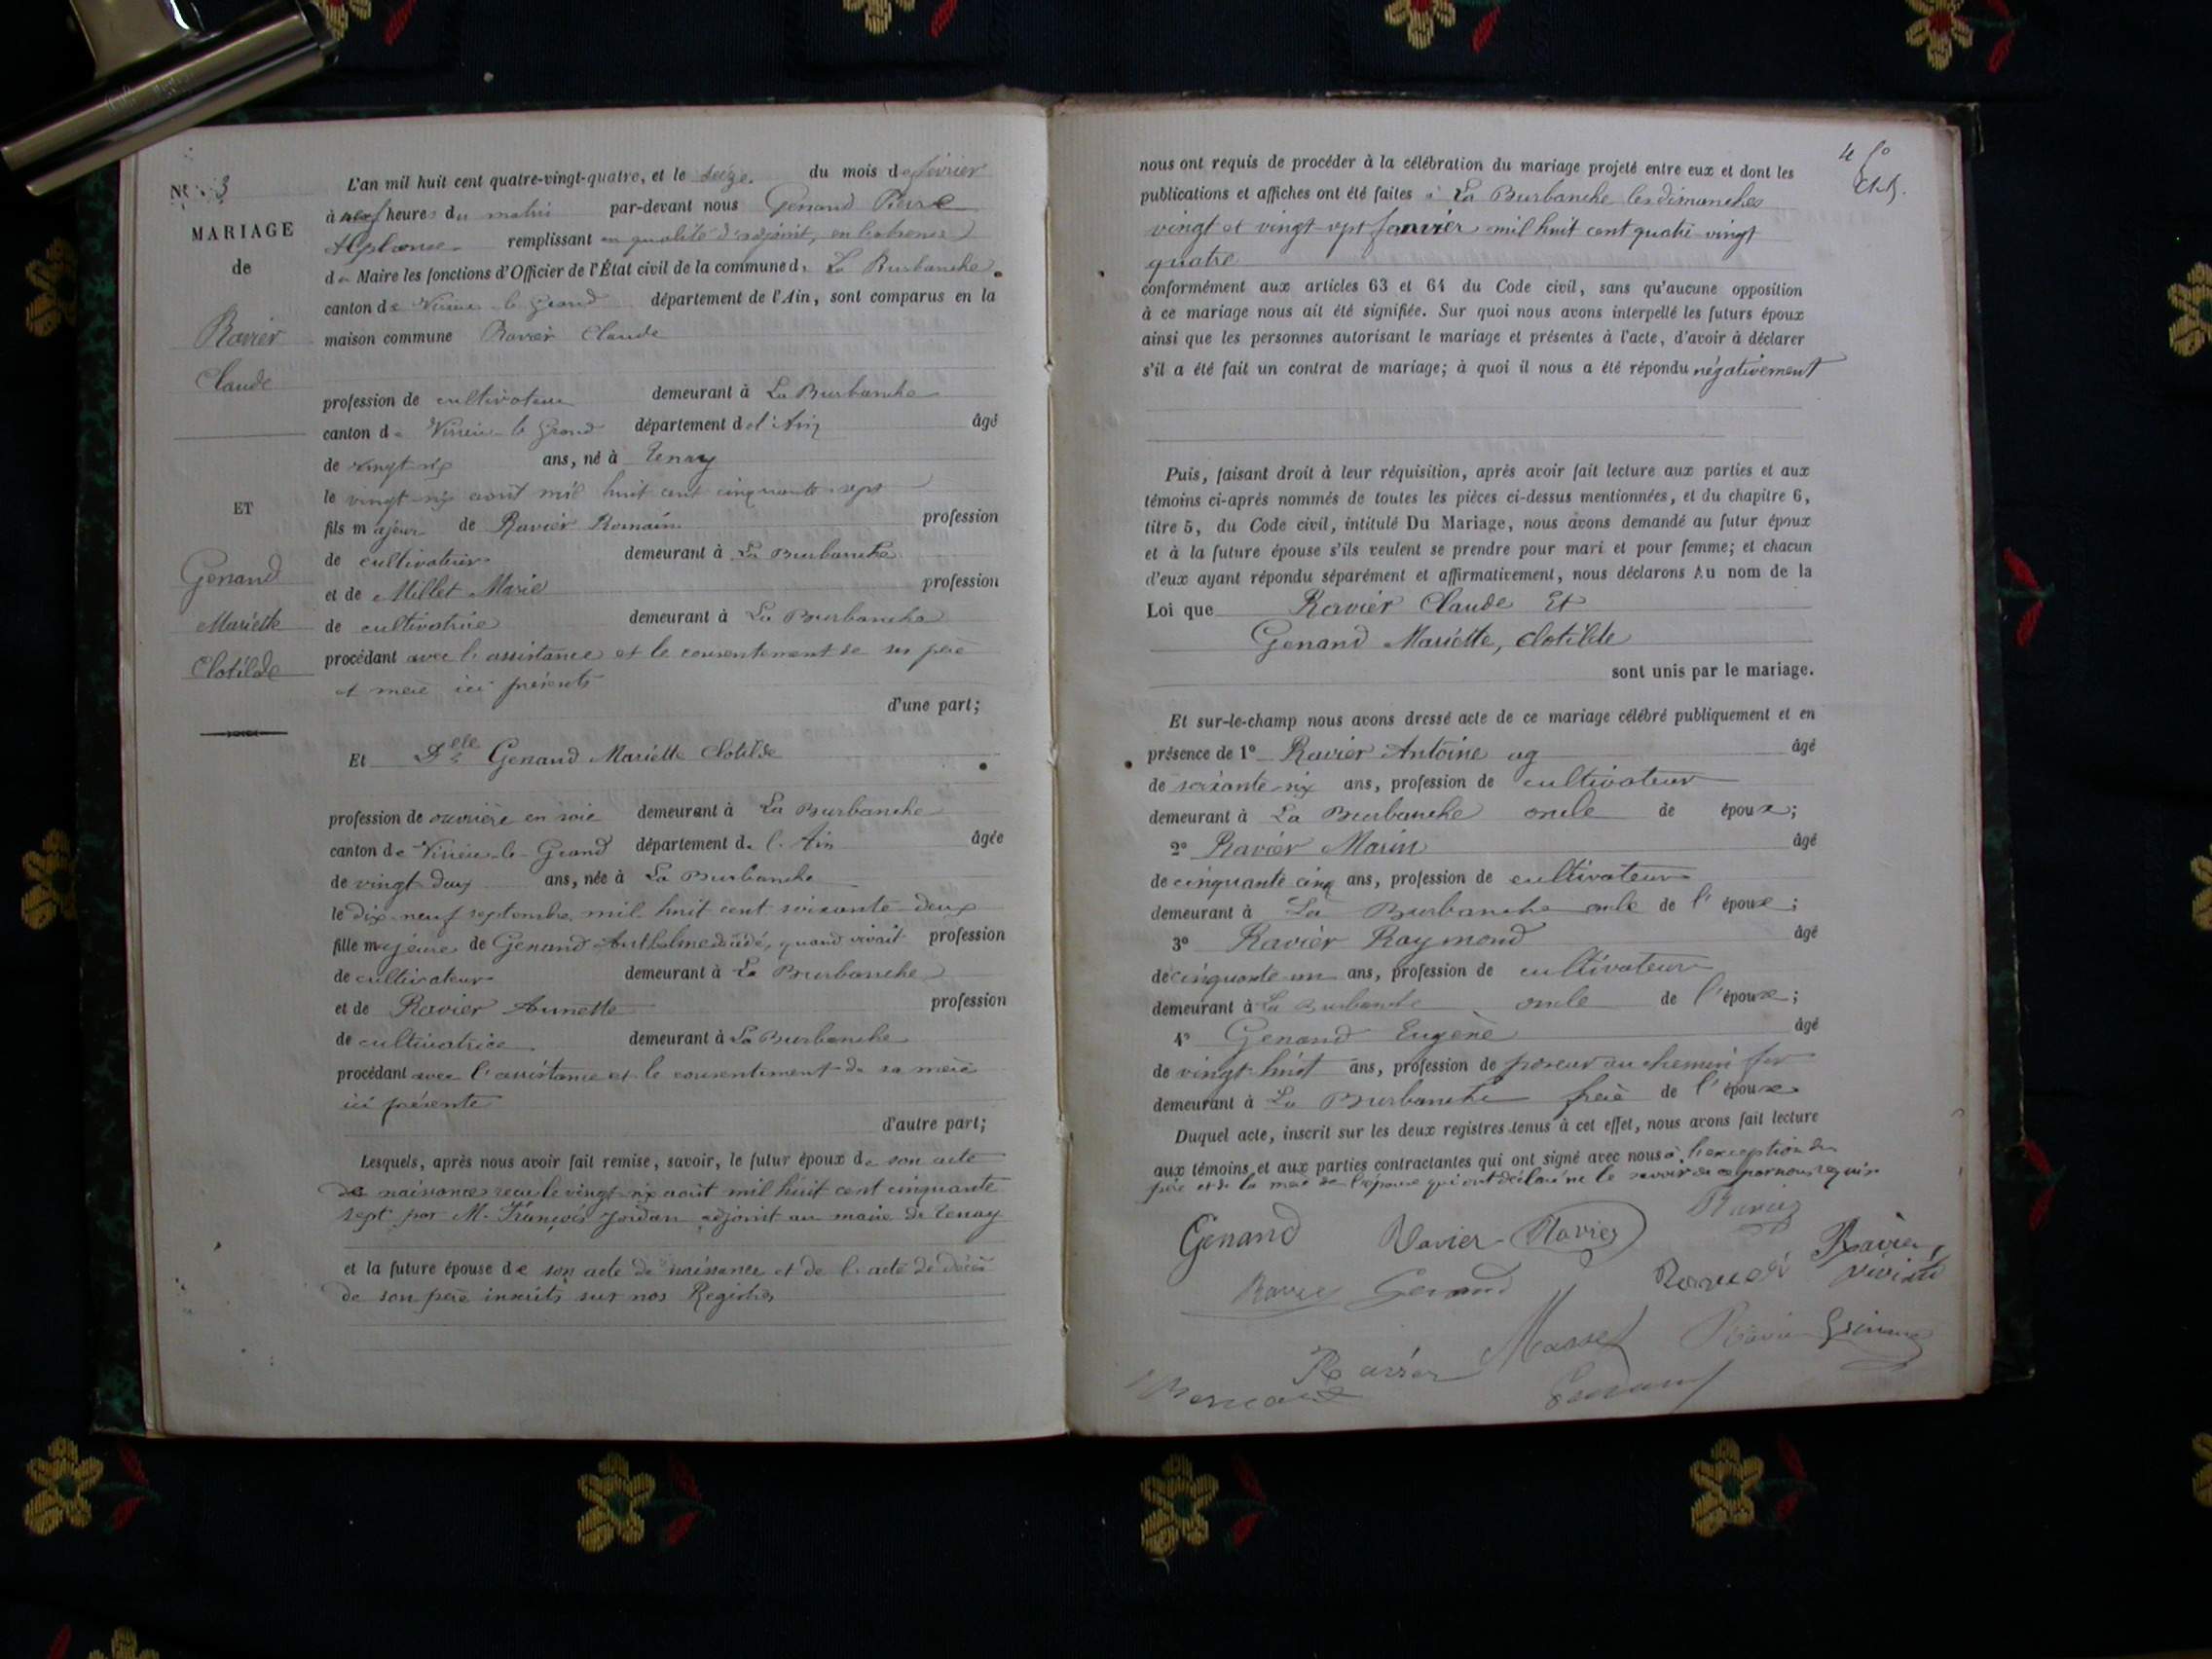 N° 3
MARIAGE
de
Ravier
Claude
ET
Genand
Mariette
Clotilde
L'an mil huit cent quatre-vingt-quatre, et le seize du mois de février
à neuf heures du matin par-devant nous Genand Pierre
Alphonse remplissant en qualité d'adjoint, en l'absence
de Maire les fonctions d'Officier de l'État civil de la commune de La Burbanche
canton de Virieu-le-Grand département de l'Ain, sont comparus en la
maison commune Ravier Claude
profession de cultivateur demeurant à La Burbanche
canton de Virieu-le-Grand département de l'Ain âgé
de vingt-six ans, né à Tenay
le vingt-six août mil huit cent cinquante-sept
fils majeur de Ravier Romain profession
de cultivateur demeurant à La Burbanche
et de Millet Marie profession
de cultivatrice demeurant à La Burbanche
procédant avec l'assistance et le consentement de ses père
et mère ici présents
d'une part;
Et Delle Genand Mariette Clotilde
profession de ouvrière en soie demeurant à La Burbanche
canton de Virieu-le-Grand département de l'Ain âgée
de vingt-deux ans, née à La Burbanche
le dix-neuf septembre mil huit cent soixante-deux
fille majeure de Genand Anthelme décédé, quand vivait profession
de cultivateur demeurant à La Burbanche
et de Ravier Annette profession
de cultivatrice demeurant à La Burbanche
procédant avec l'assistance et le consentement de sa mère
ici présente
d'autre part;
Lesquels, après nous avoir fait remise, savoir, le futur époux de son acte
de naissance reçu le vingt-six août mil huit cent cinquante
sept par M. François Jordan adjoint au maire de Tenay
et la future épouse de son acte de naissance et de l'acte de décès
de son père inscrits sur nos Registres
4 fo
nous ont requis de procéder à la célébration du mariage projeté entre eux et dont les
publications et affiches ont été faites à La Burbanche les dimanches
vingt et vingt-sept janvier mil huit cent quatre-vingt
quatre
conformément aux articles 63 et 64 du Code civil, sans qu'aucune opposition
à ce mariage nous ait été signifiée. Sur quoi nous avons interpellé les futurs époux
ainsi que les personnes autorisant le mariage et présentes à l'acte, d'avoir à déclarer
s'il a été fait un contrat de mariage; à quoi il nous a été répondu négativement
Puis, faisant droit à leur réquisition, après avoir fait lecture aux parties et aux
témoins ci-après nommés de toutes les pièces ci-dessus mentionnées, et du chapitre 6,
titre 5, du Code civil, intitulé Du Mariage, nous avons demandé au futur époux
et à la future épouse s'ils veulent se prendre pour mari et pour femme; et chacun
d'eux ayant répondu séparément et affirmativement, nous déclarons Au nom de la
Loi que Ravier Claude Et
Genand Mariette, Clotilde
sont unis par le mariage.
Et sur-le-champ nous avons dressé acte de ce mariage célébré publiquement et en
présence de 1° Ravier Antoine ag âgé
de soixante-six ans, profession de cultivateur
demeurant à La Burbanche oncle de époux;
2° Ravier Marin âgé
de cinquante cinq ans, profession de cultivateur
demeurant à La Burbanche oncle de l'épouse;
3° Ravier Raymond âgé
de cinquante un ans, profession de cultivateur
demeurant à La Burbanche oncle de l'épouse;
4° Genand Eugène âgé
de vingt-huit ans, profession de poseur au chemin fer
demeurant à La Burbanche frère de l'épouse
Duquel acte, inscrit sur les deux registres tenus à cet effet, nous avons fait lecture
aux témoins et aux parties contractantes qui ont signé avec nous à l'exception du
père et de la mère de l'épouse qui ont déclaré ne le savoir de ce par nous requis
Genand Ravier Ravier Ravier
Genand Ravier
Ravier Masset Ravier